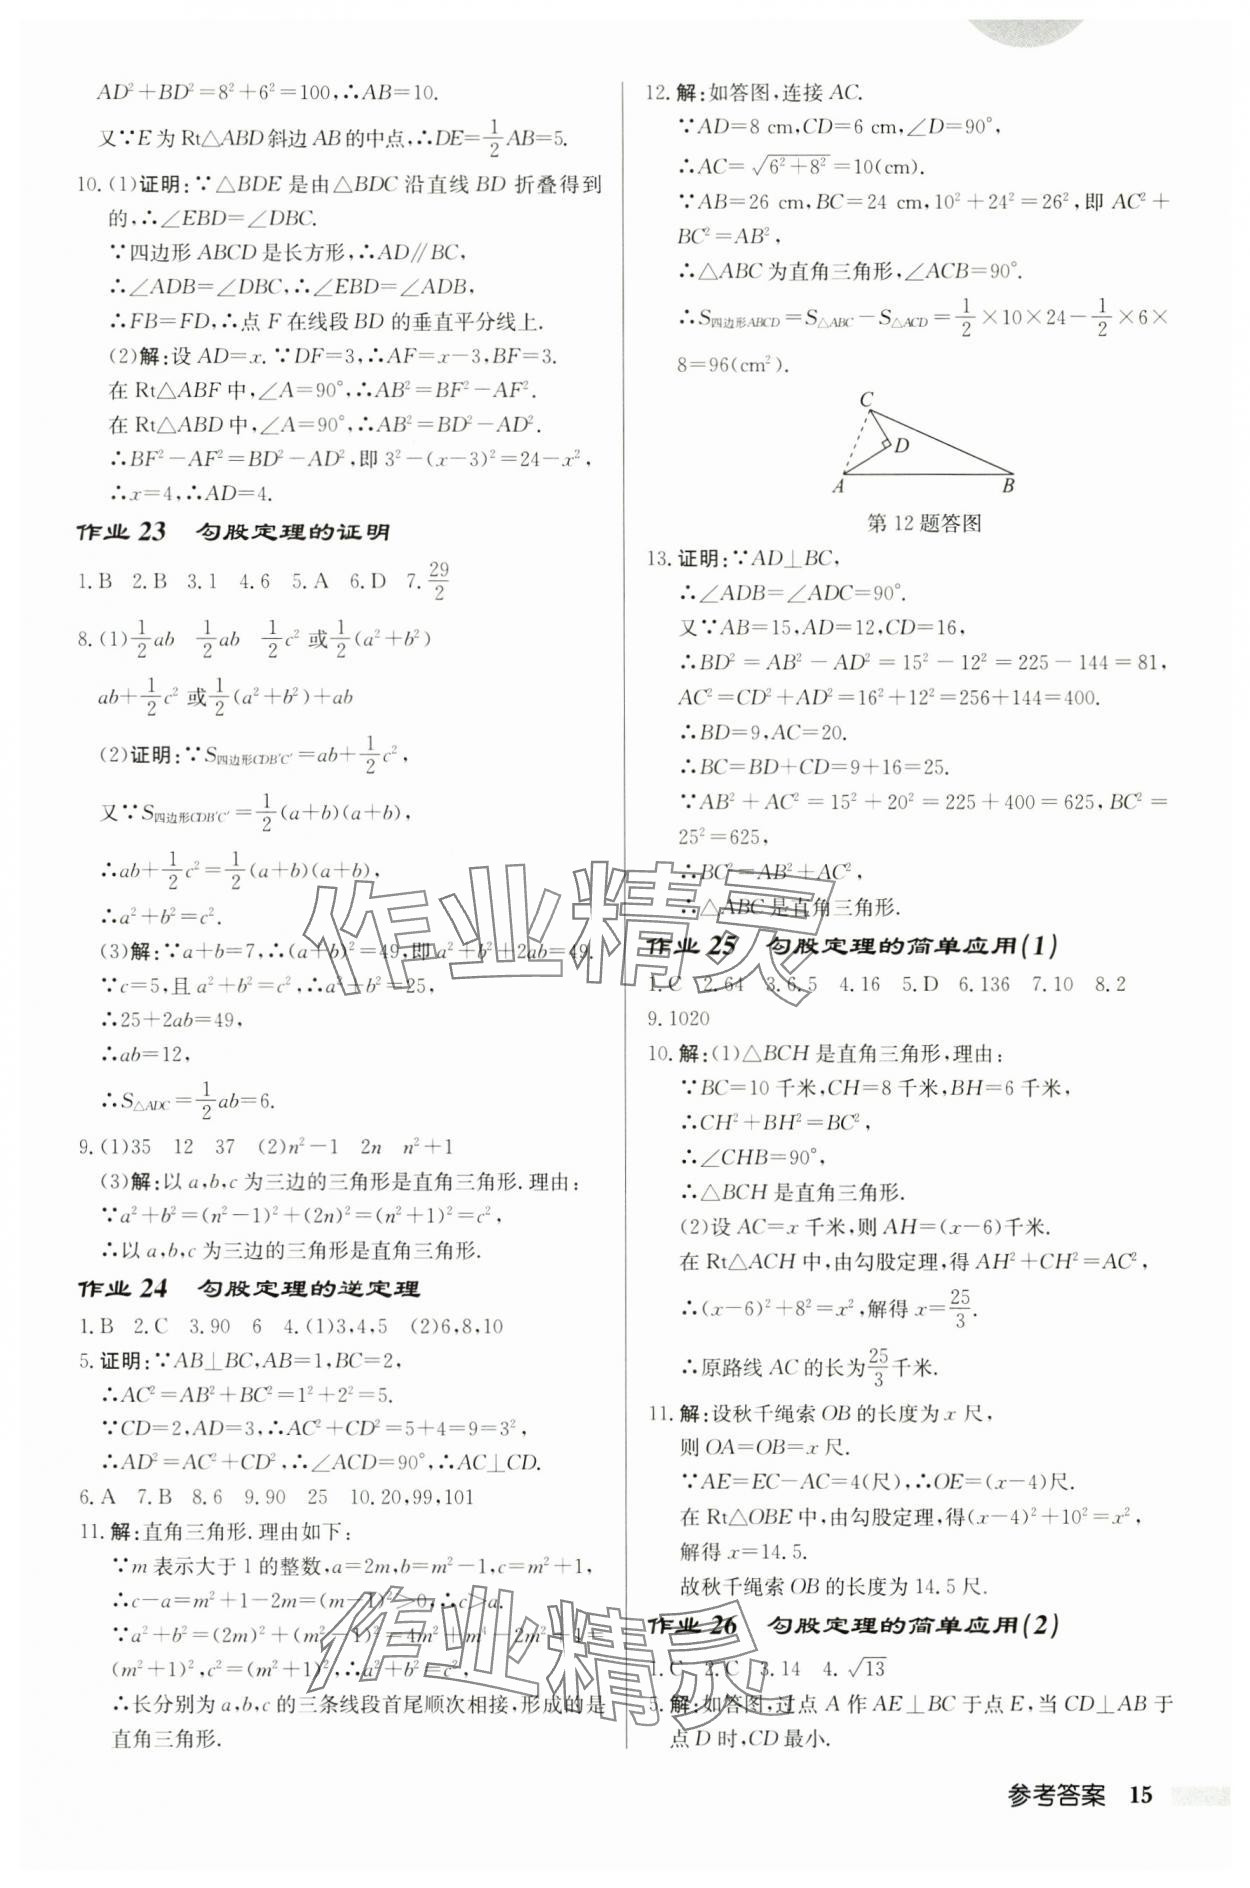 AD²+BD²=8²+6²=100,∴AB=10.
又∵E为Rt△ABD斜边AB的中点,∴DE=1/2AB=5.
10.(1)证明:∵△BDE是由△BDC沿直线BD折叠得到
的,∴∠EBD=∠DBC.
∵四边形ABCD是长方形,∴AD∥BC,
∴∠ADB=∠DBC,∴∠EBD=∠ADB,
∴FB=FD,∴点F在线段BD的垂直平分线上.
(2)解:设AD=x.∵DF=3,∴AF=x-3,BF=3.
在Rt△ABF中,∠A=90°,∴AB²=BF²-AF².
在Rt△ABD中,∠A=90°,∴AB²=BD²-AD².
∴BF²-AF²=BD²-AD²,即3²-(x-3)²=24-x²,
∴x=4,∴AD=4.
作业23 勾股定理的证明
1.B 2.B 3.1 4.6 5.A 6.D 7.29/2
8.(1)1/2ab 1/2ab 1/2c²或1/2(a²+b²)
ab+1/2c²或1/2(a²+b²)+ab
(2)证明:∵S四边形CDB'C'=ab+1/2c²,
又∵S四边形CDB'C'=1/2(a+b)(a+b),
∴ab+1/2c²=1/2(a+b)(a+b),
∴a²+b²=c².
(3)解:∵a+b=7,∴(a+b)²=49,即a²+b²+2ab=49.
∵c=5,且a²+b²=c²,∴a²+b²=25,
∴25+2ab=49,
∴ab=12,
∴S△ADC=1/2ab=6.
9.(1)35 12 37 (2)n²-1 2n n²+1
(3)解:以a,b,c为三边的三角形是直角三角形.理由:
∵a²+b²=(n²-1)²+(2n)²=(n²+1)²=c²,
∴以a,b,c为三边的三角形是直角三角形.
作业24 勾股定理的逆定理
1.B 2.C 3.90 6 4.(1)3,4,5 (2)6,8,10
5.证明:∵AB⊥BC,AB=1,BC=2,
∴AC²=AB²+BC²=1²+2²=5.
∵CD=2,AD=3,∴AC²+CD²=5+4=9=3²,
∴AD²=AC²+CD²,∴∠ACD=90°,∴AC⊥CD.
6.A 7.B 8.6 9.90 25 10.20,99,101
11.解:直角三角形.理由如下:
∵m表示大于1的整数,a=2m,b=m²-1,c=m²+1,
∴c-a=m²+1-2m=(m-1)²>0,∴c>a.
∵a²+b²=(2m)²+(m²-1)²=4m²+m⁴-2m²+1=
(m²+1)²,c²=(m²+1)²,∴a²+b²=c².
∴长分别为a,b,c的三条线段首尾顺次相接,形成的是
直角三角形.
12.解:如答图,连接AC.
∵AD=8 cm,CD=6 cm,∠D=90°,
∴AC=√(6²+8²)=10(cm).
∵AB=26 cm,BC=24 cm,10²+24²=26²,即AC²+
BC²=AB²,
∴△ABC为直角三角形,∠ACB=90°.
∴S四边形ABCD=S△ABC-S△ACD=1/2×10×24-1/2×6×
8=96(cm²).
C
D
A B
第12题答图
13.证明:∵AD⊥BC,
∴∠ADB=∠ADC=90°.
又∵AB=15,AD=12,CD=16,
∴BD²=AB²-AD²=15²-12²=225-144=81,
AC²=CD²+AD²=16²+12²=256+144=400.
∴BD=9,AC=20.
∴BC=BD+CD=9+16=25.
∵AB²+AC²=15²+20²=225+400=625,BC²=
25²=625,
∴BC²=AB²+AC²,
∴△ABC是直角三角形.
作业25 勾股定理的简单应用(1)
1.C 2.64 3.6.5 4.16 5.D 6.136 7.10 8.2
9.1020
10.解:(1)△BCH是直角三角形,理由:
∵BC=10千米,CH=8千米,BH=6千米,
∴CH²+BH²=BC²,
∴∠CHB=90°,
∴△BCH是直角三角形.
(2)设AC=x千米,则AH=(x-6)千米.
在Rt△ACH中,由勾股定理,得AH²+CH²=AC²,
∴(x-6)²+8²=x²,解得x=25/3.
∴原路线AC的长为25/3千米.
11.解:设秋千绳索OB的长度为x尺,
则OA=OB=x尺.
∵AE=EC-AC=4(尺),∴OE=(x-4)尺.
在Rt△OBE中,由勾股定理,得(x-4)²+10²=x²,
解得x=14.5.
故秋千绳索OB的长度为14.5尺.
作业26 勾股定理的简单应用(2)
1.C 2.C 3.14 4.√13
5.解:如答图,过点A作AE⊥BC于点E,当CD⊥AB于
点D时,CD最小.
参考答案 15
作业精灵
作业精灵